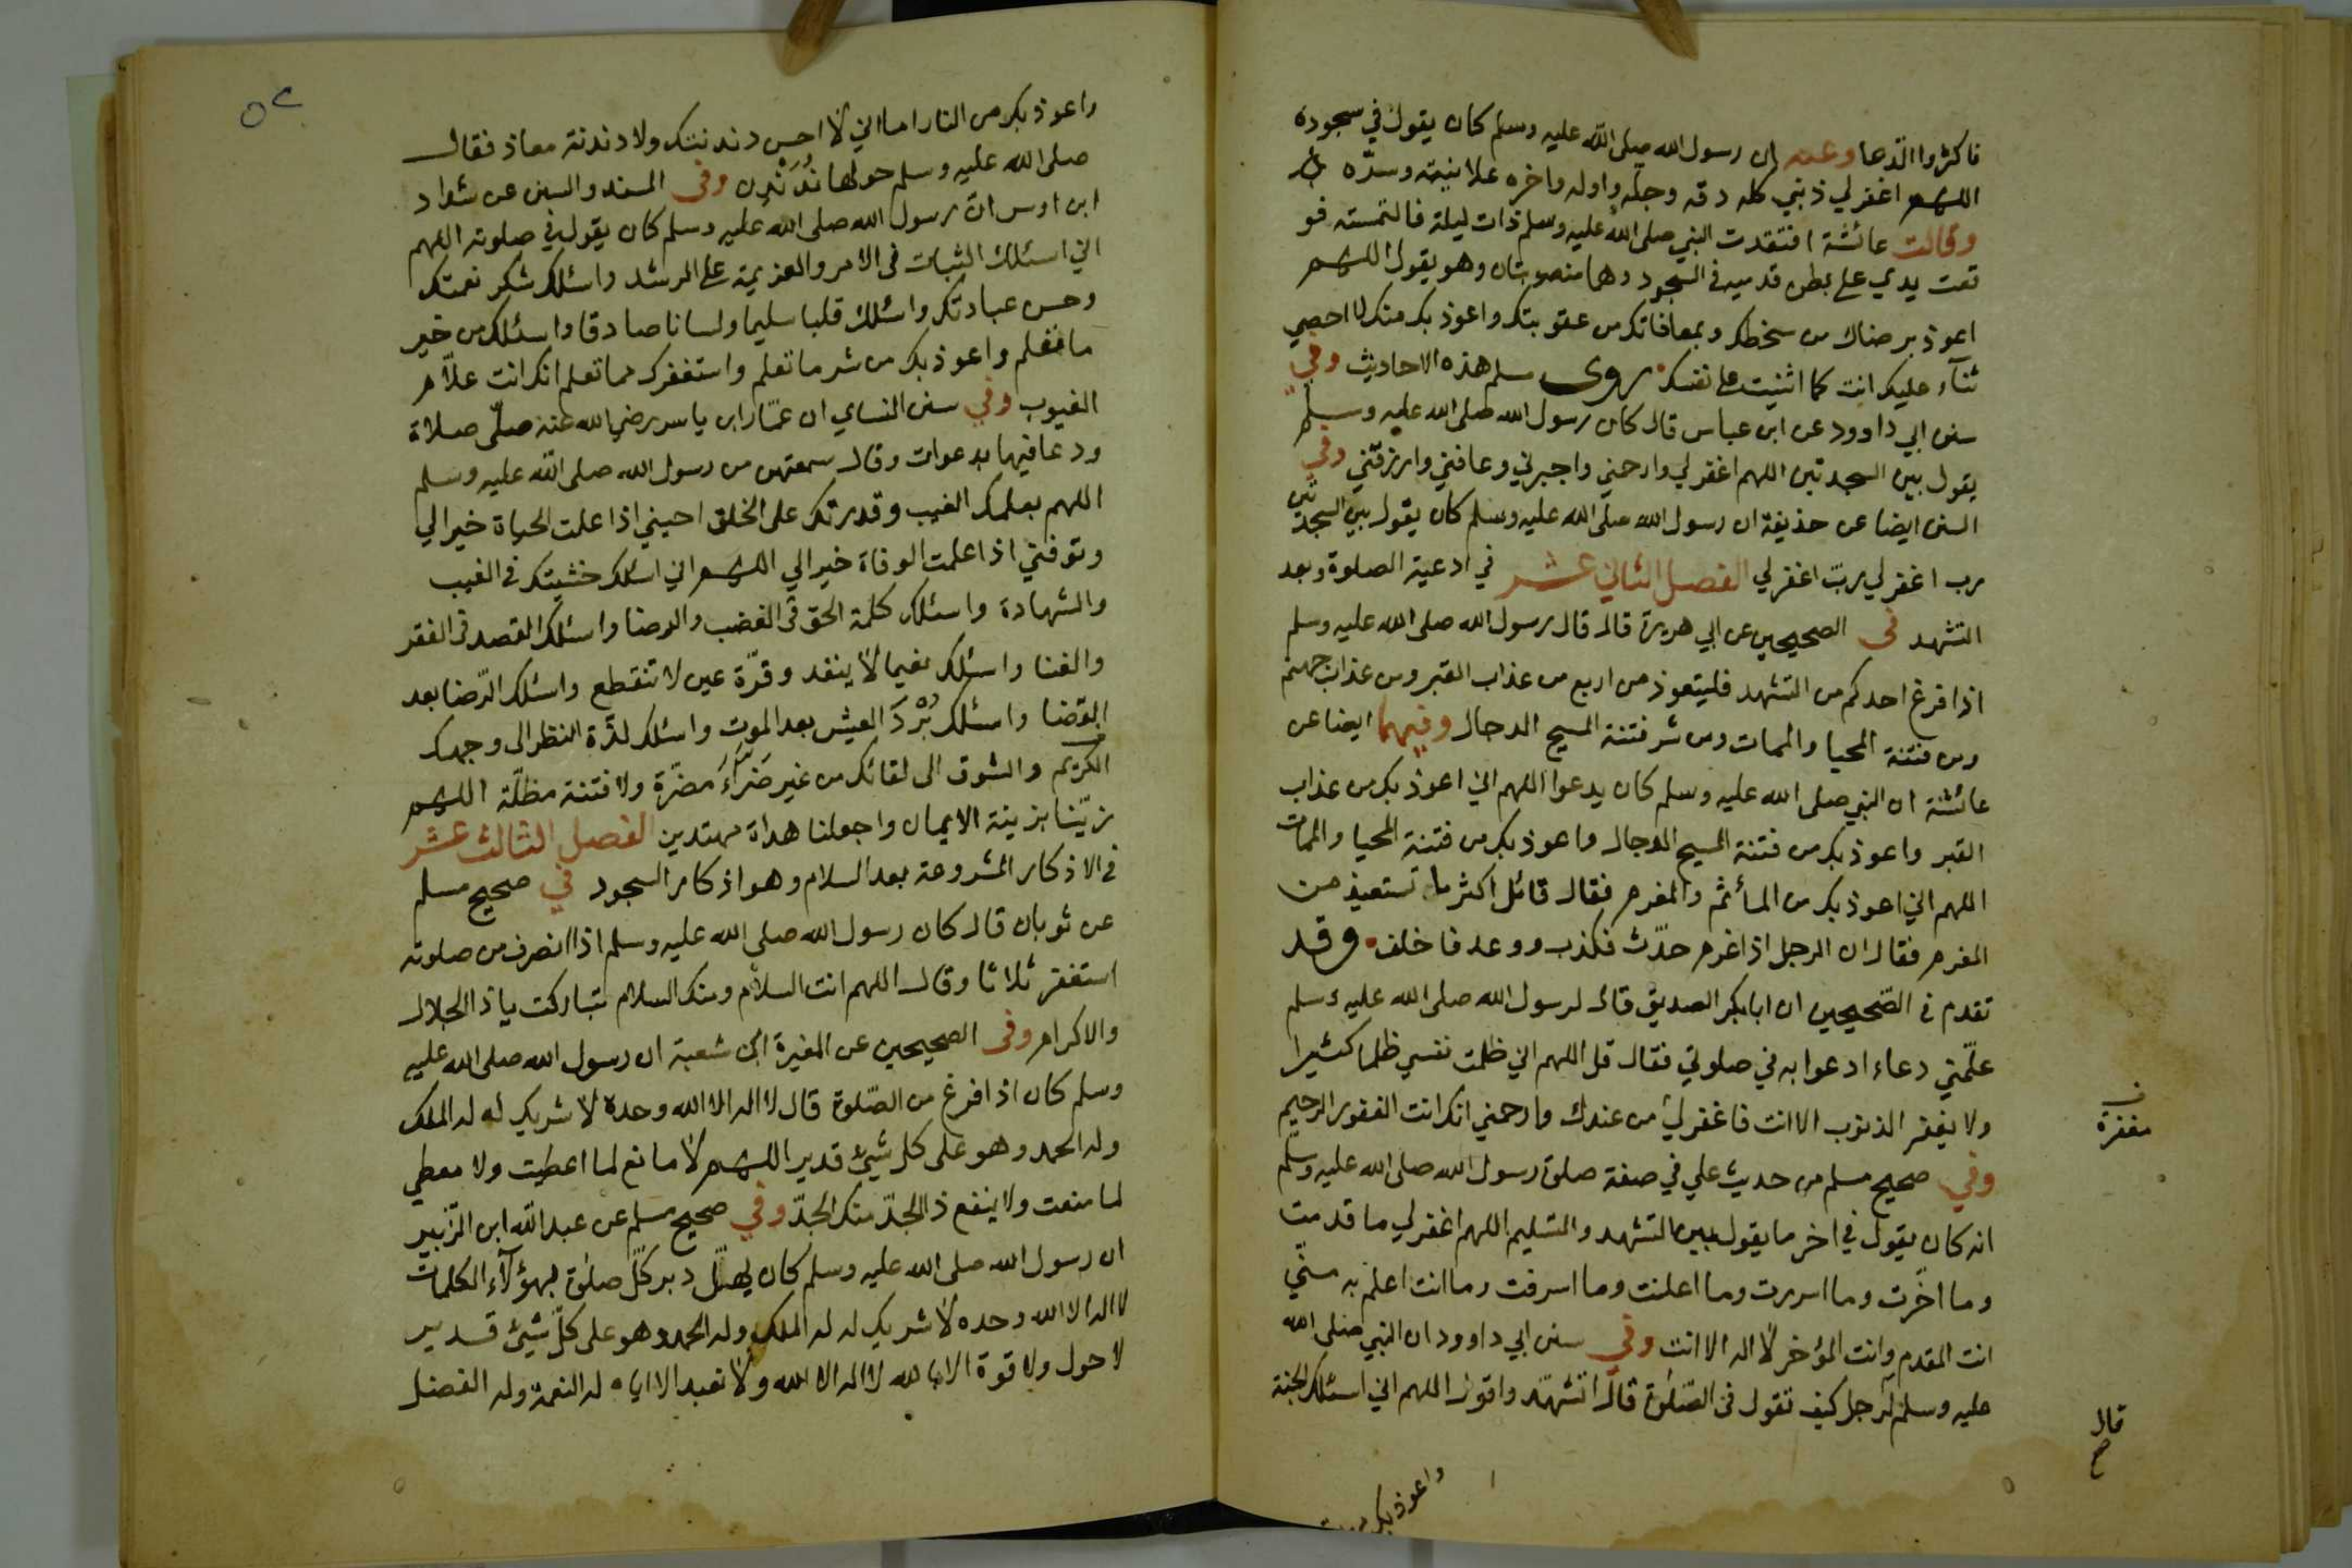 فاكثروا الدعا وعنه ان رسول الله صلى الله عليه وسلم كان يقول في سجوده
اللهم اغفر لي ذنبي كله دقه وجله واوله واخره علانيته وسره
وقالت عائشة افتقدت النبي صلى الله عليه وسلم ذات ليلة فالتمسته فو
قعت يدي على بطن قدميه في السجود وهما منصوبتان وهو يقول اللهم
اعوذ برضاك من سخطك وبمعافاتك من عقوبتك واعوذ بك منك لا احصي
ثنآء عليك انت كما اثنيت على نفسك روى مسلم هذه الاحاديث وفي
سنن ابي داوود عن ابن عباس قال كان رسول الله صلى الله عليه وسلم
يقول بين السجدتين اللهم اغفر لي وارحمني واجبرني وعافني وارزقني وفي
السنن ايضا عن حذيفة ان رسول الله صلى الله عليه وسلم كان يقول بين السجدتين
رب اغفر لي ربّ اغفر لي الفصل الثاني عشر في ادعية الصلوة وبعد
التشهد في الصحيحين عن ابي هريرة قال قال رسول الله صلى الله عليه وسلم
اذا فرغ احدكم من التشهد فليتعوذ من اربع من عذاب القبر ومن عذاب جهنم
ومن فتنة المحيا والممات ومن شر فتنة المسيح الدجال وفيهما ايضا عن
عائشة ان النبي صلى الله عليه وسلم كان يدعوا اللهم اني اعوذ بك من عذاب
القبر واعوذ بك من فتنة المسيح الدجال واعوذ بك من فتنة المحيا والممات
اللهم اني اعوذ بك من المأثم والمغرم فقال قائل اكثر ما تستعيذ من
المغرم فقال ان الرجل اذا غرم حدّث فكذب ووعد فاخلف وقد
تقدم في الصّحيحين ان ابا بكر الصديق قال لرسول الله صلى الله عليه وسلم
علّمني دعاء ادعوا به في صلوتي فقال قل اللهم اني ظلمت نفسي ظلما كثيرا
ولا يغفر الذنوب الا انت فاغفر لي من عندك وارحمني انك انت الغفور الرحيم
مغفرة
وفي صحيح مسلم من حديث علي في صفة صلوة رسول الله صلى الله عليه وسلم
انه كان يقول في اخر ما يقول بين التشهد والتسليم اللهم اغفر لي ما قدمت
وما اخّرت وما اسررت وما اعلنت وما اسرفت وما انت اعلم به منّي
انت المقدم وانت المؤخر لا اله الا انت وفي سنن ابي داوود ان النبي صلى الله
قال
عليه وسلم لرجل كيف تقول في الصّلوة قال اتشهّد واقول اللهم اني اسئلك الجنة
واعوذ بك من
واعوذ بك من النار اما اني لا احسن دندنتك ولا دندنة معاذ فقال
صلى الله عليه وسلم حولها نُدَنْدِن وفي المسند والسنن عن شداد
ابن اوس انّ رسول الله صلى الله عليه وسلم كان يقول في صلوته اللهم
اني اسئلك الثبات في الامر والعزيمة على الرشد واسئلك شكر نعمتك
وحسن عبادتك واسئلك قلبا سليما ولسانا صادقا واسئلك من خير
ما تعلم واعوذ بك من شر ما تعلم واستغفرك مما تعلم انك انت علاّم
الغيوب وفي سنن النساي ان عمّار ابن ياسر رضي الله عنه صلّى صلاة
ودعا فيها بدعوات وقال سمعتهن من رسول الله صلى الله عليه وسلم
اللهم بعلمك الغيب وقدرتك على الخلق احيني اذا علمت الحياة خيرا لي
وتوفني اذا علمت الوفاة خيرا لي اللهم اني اسئلك خشيتك في الغيب
والشهادة واسئلك كلمة الحق في الغضب والرضا واسئلك القصد في الفقر
والغنا واسئلك نعيما لا ينفد وقرّة عين لا تنقطع واسئلك الرّضا بعد
القضا واسئلك بُرْدَ العيش بعد الموت واسئلك لذّة النظر الى وجهك
الكريم والشوق الى لقائك من غير ضَرَّآءَ مضرّة ولا فتنة مظلّة اللهم
زيّنا بزينة الايمان واجعلنا هداة مهتدين الفصل الثالث عشر
في الاذكار المشروعة بعد السلام وهو اذكار السجود في صحيح مسلم
عن ثوبان قال كان رسول الله صلى الله عليه وسلم اذا انصرف من صلوته
استغفر ثلاثا وقال اللهم انت السلام ومنك السلام تباركت يا ذا الجلال
والاكرام وفي الصحيحين عن المغيرة ابن شعبة ان رسول الله صلى الله عليه
وسلم كان اذا فرغ من الصّلوة قال لا اله الا الله وحده لا شريك له له الملك
وله الحمد وهو على كل شيئ قدير اللهم لا مانع لما اعطيت ولا معطي
لما منعت ولا ينفع ذا الجدّ منك الجدّ وفي صحيح مسلم عن عبد الله ابن الزّبير
ان رسول الله صلى الله عليه وسلم كان يهلّل دبر كلّ صلوة بهؤلآء الكلمات
لا اله الا الله وحده لا شريك له له الملك وله الحمد وهو على كلّ شيئ قدير
لا حول ولا قوة الا بالله لا اله الا الله ولا نعبد الا اياه له النعمة وله الفضل